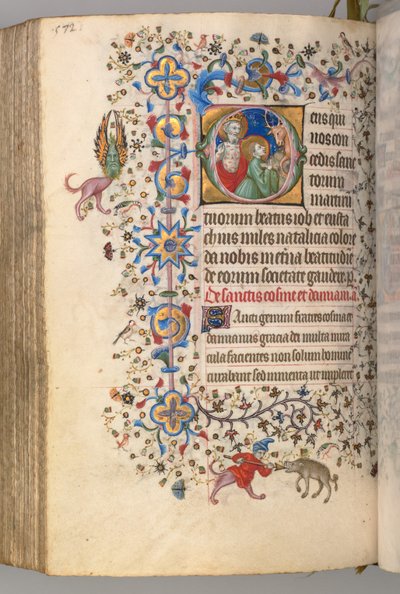 572
Deus qui
nos con
cedis sanc
torum
martiru
tuorum beatus iob et eusta
chius miles natalicia colore
da nobis in etna beatitudie
de eorum societate gaudere. p
De sanctis cosme et damiani. a
Sancti gemini fratres cosma et
damianus graca dei multa mira
cula facientes non solum homines
curabant sed iumenta ut impleret